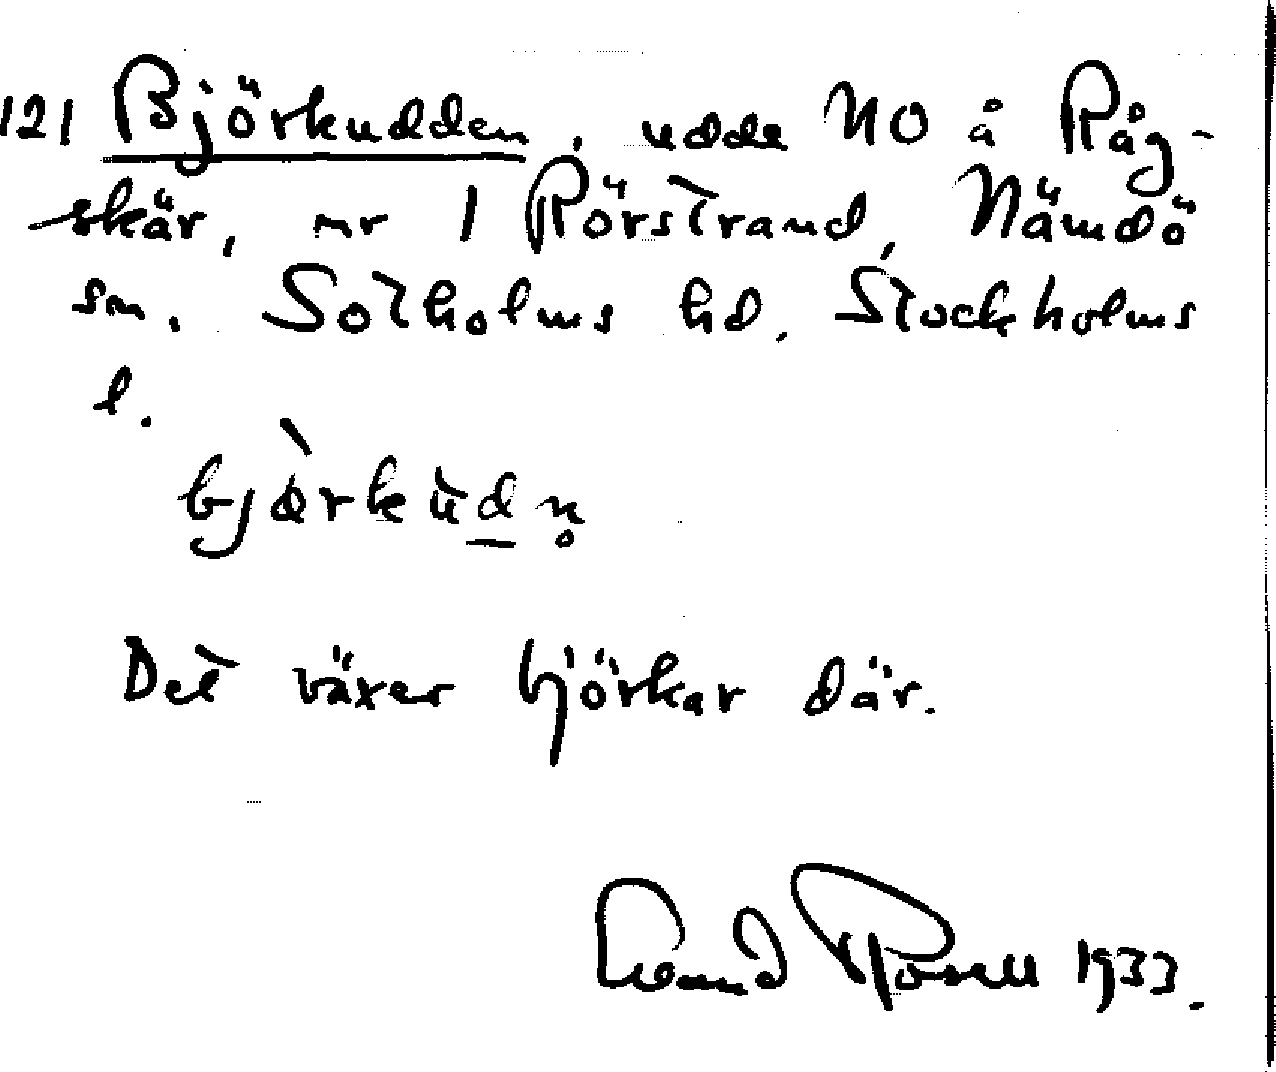 121 Björkudden, udde NO å Råg-
skär, nr 1 Rörstrand, Nämdö
sn. Sotholms hd. Stockholms
l.
bjòrkùdn̥
Det växer björkar där.
1933.